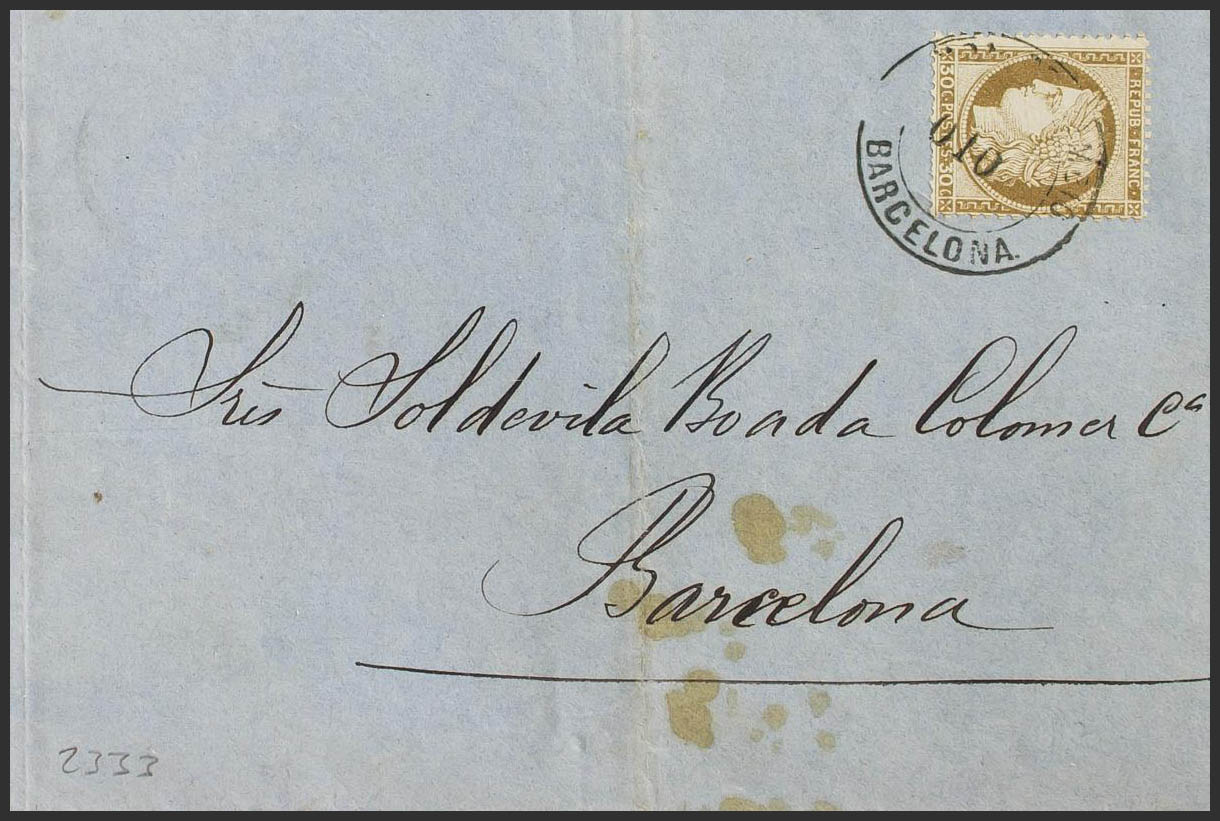 REPUB. FRANC.
30 C. POSTES 30 C.
BARCELONA.
Sres Soldevila Boada Colomer Cª
Barcelona
2333